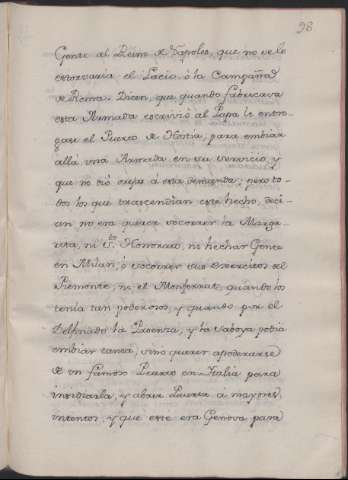 98
Gente al Reino de Napoles, que no se lo
estorvaria el Lacio, ò la Campaña
de Roma. Dicen, que quando fabricava
esta Armada escrivió al Papa le entre-
gase el Puerto de Hostia, para embiar
allà una Armada en su servicio, y
que no dió orejas á esta demanda; pero to-
dos los que trascendian este hecho, deci-
an no era querer socorrer la Marga-
rita, ni Sto. Honorato, ni hechar Gente
en Milan, ò socorrer sus Exercitos del
Piemonte, ni el Monferrat, quando los
tenia tan poderosos, y quando por el
Delfinado la Proenza, y la Saboya podia
embiar tanta, sino querer apoderarse
de un famoso Puerto en Italia para
insidiarla, y abrir Puerta a mayores
intentos, y que este era Genova para